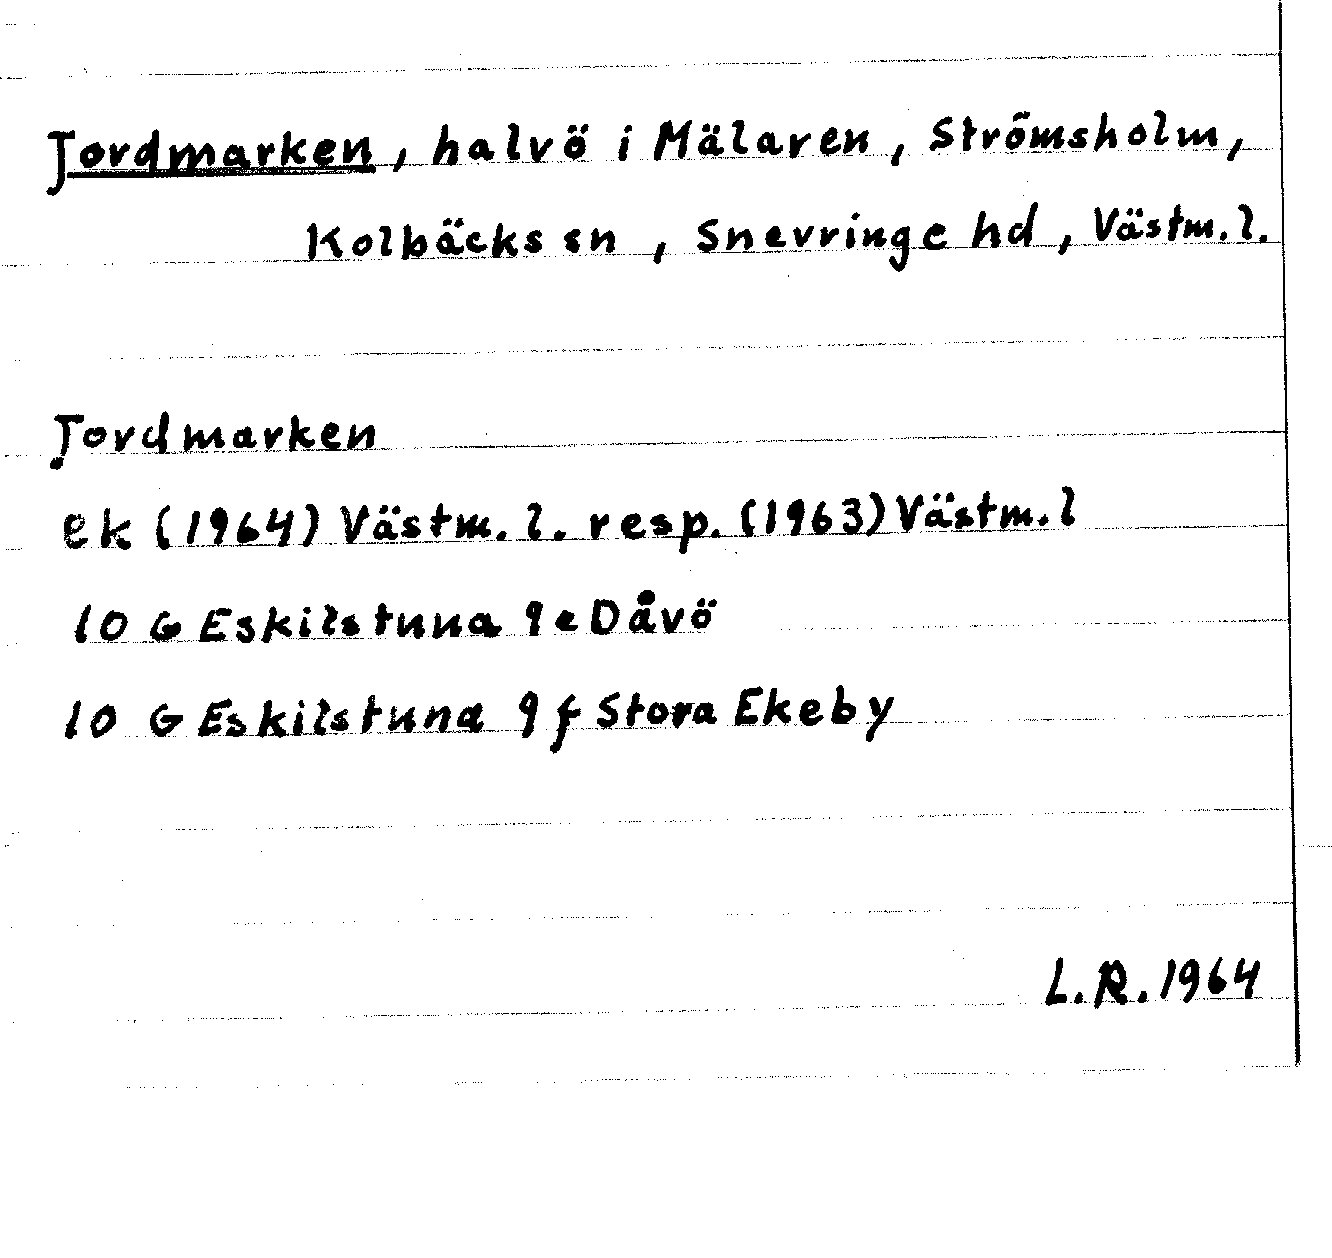 Jordmarken, halvö i Mälaren, Strömsholm,
Kolbäcks sn, Snevringe hd, Västm. l.
Jordmarken
ek (1964) Västm. l. resp. (1963) Västm. l
10 G Eskilstuna 9 e Dåvö
10 G Eskilstuna 9 f Stora Ekeby
L.R. 1964